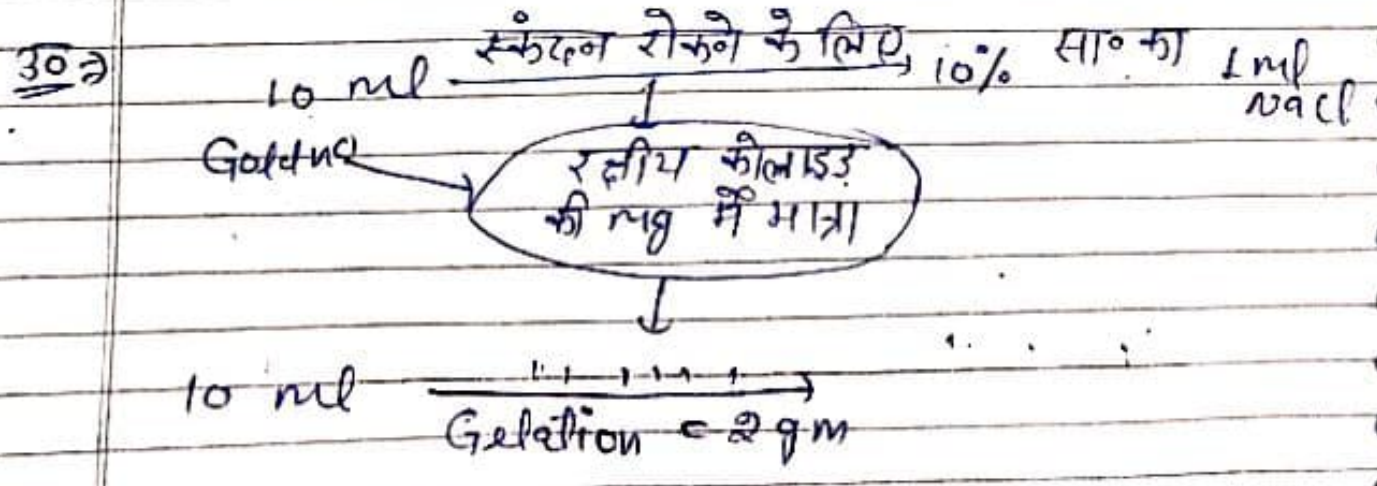 उ० →
10 ml स्कंदन रोकने के लिए 10% सा० का 1 ml
Nacl
Gold no
रक्षीय कोलाइड
की mg में मात्रा
10 ml
Gelation = 2 gm